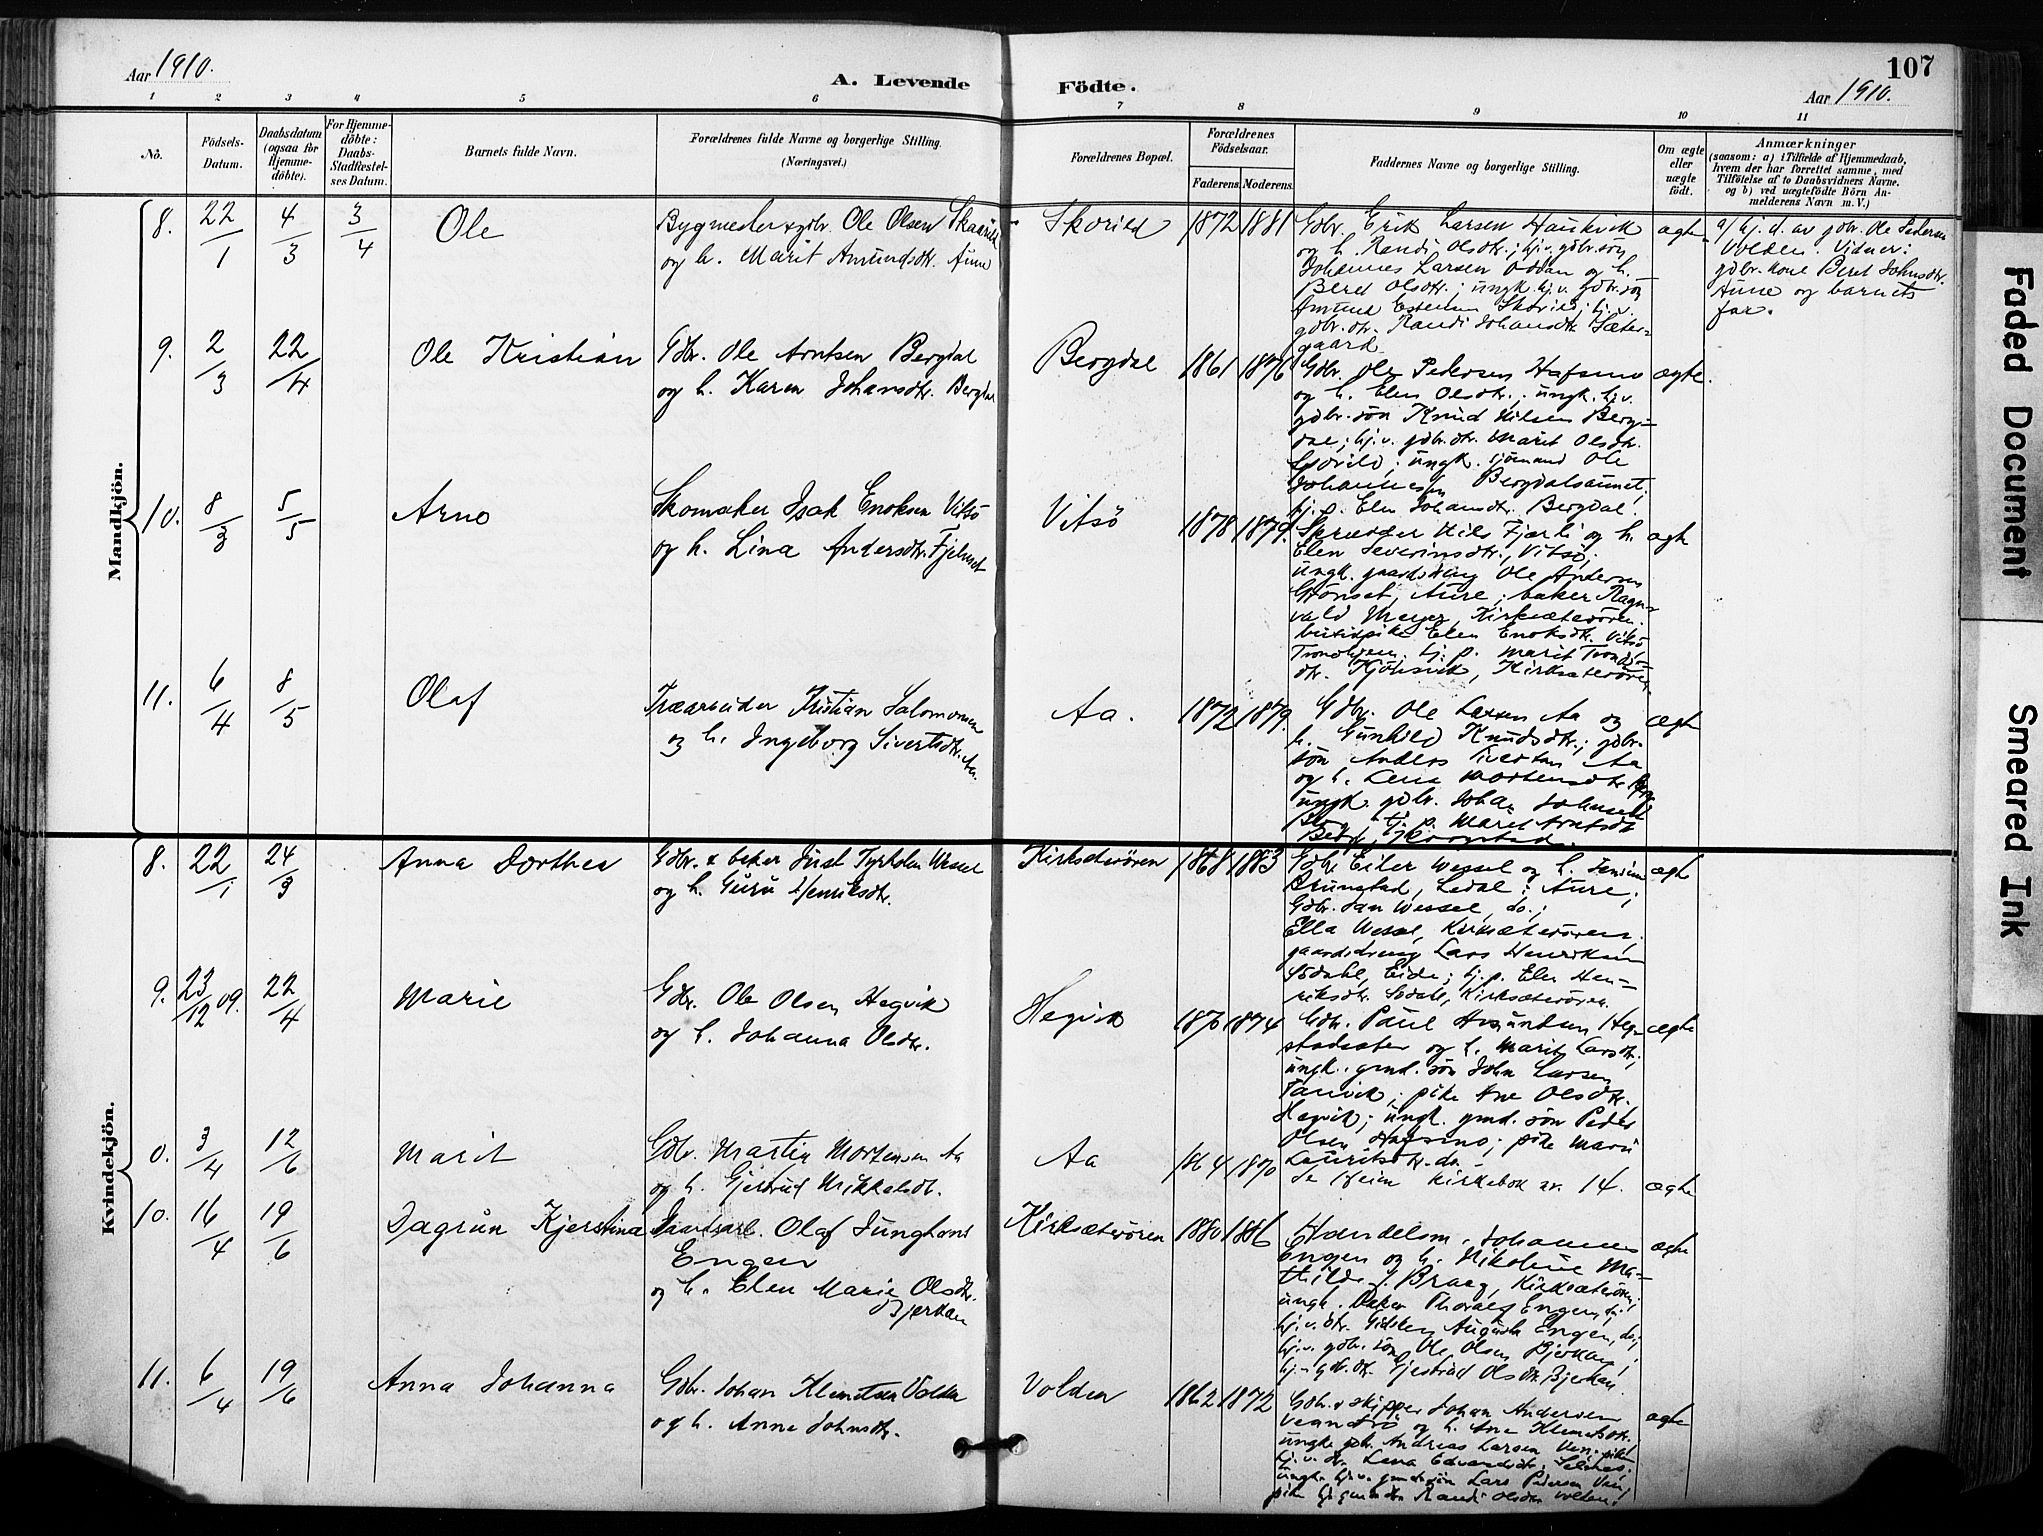 Aar 1910.
A. Levende Födte.
107
Aar 1910.
1 2 3 4 5 6 7 8 9 10 11
No.
Födsels-
Datum.
Daabsdatum
(ogsaa for
Hjemme-
döbte).
For Hjemme-
döbte:
Daabs-
Stadfæstel-
ses Datum.
Barnets fulde Navn.
Forældrenes fulde Navne og borgerlige Stilling.
(Næringsvei.)
Forældrenes Bopæl.
Forældrenes
Födselsaar.
Faderens. Moderens.
Faddernes Navne og borgerlige Stilling.
Om ægte
eller
uægte
födt.
Anmærkninger
(saasom: a) i Tilfælde af Hjemmedaab,
hvem der har forrettet samme, med
Tilföielse af to Daabsvidners Navne.
og b) ved uægtefödte Börn An-
melderens Navn m. V.)
Mandkjön.
8. 22/1 4/3 3/4 Ole
Bygmester & gdbr. Ole Olsen Skarild
og h. Marit Amundsdtr. Aune
Skorild 1872 1881
Gdbr. Erik Larsen Haukvik
og h. Randi Olsdtr.; hj.v. gdbr.søn
Johannes Larsen Oddan og h.
Beret Olsdtr.; ungk. hj.v. gdbr.søn
Amund Estensen Skorild; hj.v.
gdbr.dtr. Randi Johansdtr. Sæter-
gaard
ægte
a/ hj. d. av gdbr. Ole Pedersen
Volden. Vidner:
gdbr. kone Beret Johnsdtr.
Aune og barnets
far.
9. 2/3 22/4 Ole Kristian
Gdbr. Ole Arntsen Bergdal
og h. Karen Johansdtr. Bergdal
Bergdal 1861 1876
Gdbr. Ole Pedersen Hafsmo
og h. Elen Olsdtr.; ungk. hj.v.
gdbr.søn Knud Nilsen Berg-
dal; hj.v. gdbr.dtr. Marit Olsdtr.
Skorild; ungk. sjömand Ole
Johannessen Bergdalsaunet;
hj. p. Elen Johansdtr. Bergdal.
ægte.
10. 8/3 5/5 Arno
Skomaker Isak Enoksen Vitsö
og h. Lina Andersdtr. Fjelnset
Vitsö 1878 1879.
Skrædder Nils Fjærli og h.
Elen Severinsdtr., Vitsö;
ungk. gaardbrug Ole Andersen
Grönset, Aure; baker Ragn-
vald Meyer, Kirksæterören.
butikpike Elen Enoksdtr. Vitsö
Trondhjem. hj. p. Marit Trond-
dtr. Kjönsvik, Kirksæterören
ægte
11. 6/4 8/5 Olaf
Træarbeider Kristian Salomonsen
og h. Ingeborg Sivertsdtr. Aa.
Aa. 1872 1879.
Gdbr. Ole Larsen Aa og
h. Gunhild Knudsdtr.; gdbr.
søn Anders Sivertsen Aa
og h. Lena Mortensdtr.
ungk. gdbr. Johan Johnsen
hj. p. Marit Arntsdtr.
ægte
Kvindekjön.
8. 22/1 24/3 Anna Dorthea
Gdbr. & baker Just Tyrholm Wessel
og h. Guru Henriksdtr.
Kirksæterören 1868 1883
Gdbr. Eiler Wessel og h. Jensine
Brunstad, Ledal i Aure;
Gdbr. Jan Wessel, do.;
Ella Wessel, Kirksæterören;
gaardsdreng Lars Henriksen
Södahl, Eide; hj. p. Elen Hen-
riksdtr. Södahl, Kirksæterören.
ægte
9. 23/12 09. 22/4 Marie
Gdbr. Ole Olsen Hegvik
og h. Johanna Olsdtr.
Hegvik 1870 1874
Gdbr. Paul Amundsen Heg-
stadsæter og h. Marit Larsdtr.;
ungk. gmd. søn John Larsen
Tanvik; pike Ane Olsdtr.
Hegvik; ungk. gmd. søn Peder
Olsen Hafsmo; pike Marie
Lauritsdtr. do.
ægte
0. 3/4 12/6 Marit
Gdbr. Martin Mortensen Aa
og h. Gjertrud Mikkelsdtr.
Aa 1864 1870
Se Heim kirkebok nr. 14.
ægte
10. 16/4 19/6 Dagrun Kjerstina
Olaf Junghans
Engen
og h. Elen Marie Olsdtr.
Bjerkan
Kirksæterören 1880 1886
Handelsm. Johannes
Engen og h. Nikoline Ma-
thilde f. Braag, Kirksæterören;
ungk. Thoralf Engen, do.;
hj.v. dtr. Gidsken Augusta Engen, do.;
hj.v. gdbr. søn Ole Olsen Bjerkan;
hj.v. gdbr. dtr. Gjertrud Olsdtr. Bjerkan.
ægte
11. 6/4 19/6 Anna Johanna
Gdbr. Johan Klemetsen Volden
og h. Anne Johnsdtr.
Volden 1862 1872
Gdbr. & skipper Johan Andersen
og h. Ane Klemetsdtr.
ungk. gdbr. Andreas Larsen Ven; pike
hj.v. dtr. Lena Edvardsdtr. Selsnes;
ungk. hj.v. gmd. søn Lars Pedersen Ven;
pike hj. gmd. dtr. Randi Olsdtr. Volden.
ægte
Faded Document
Smeared Ink